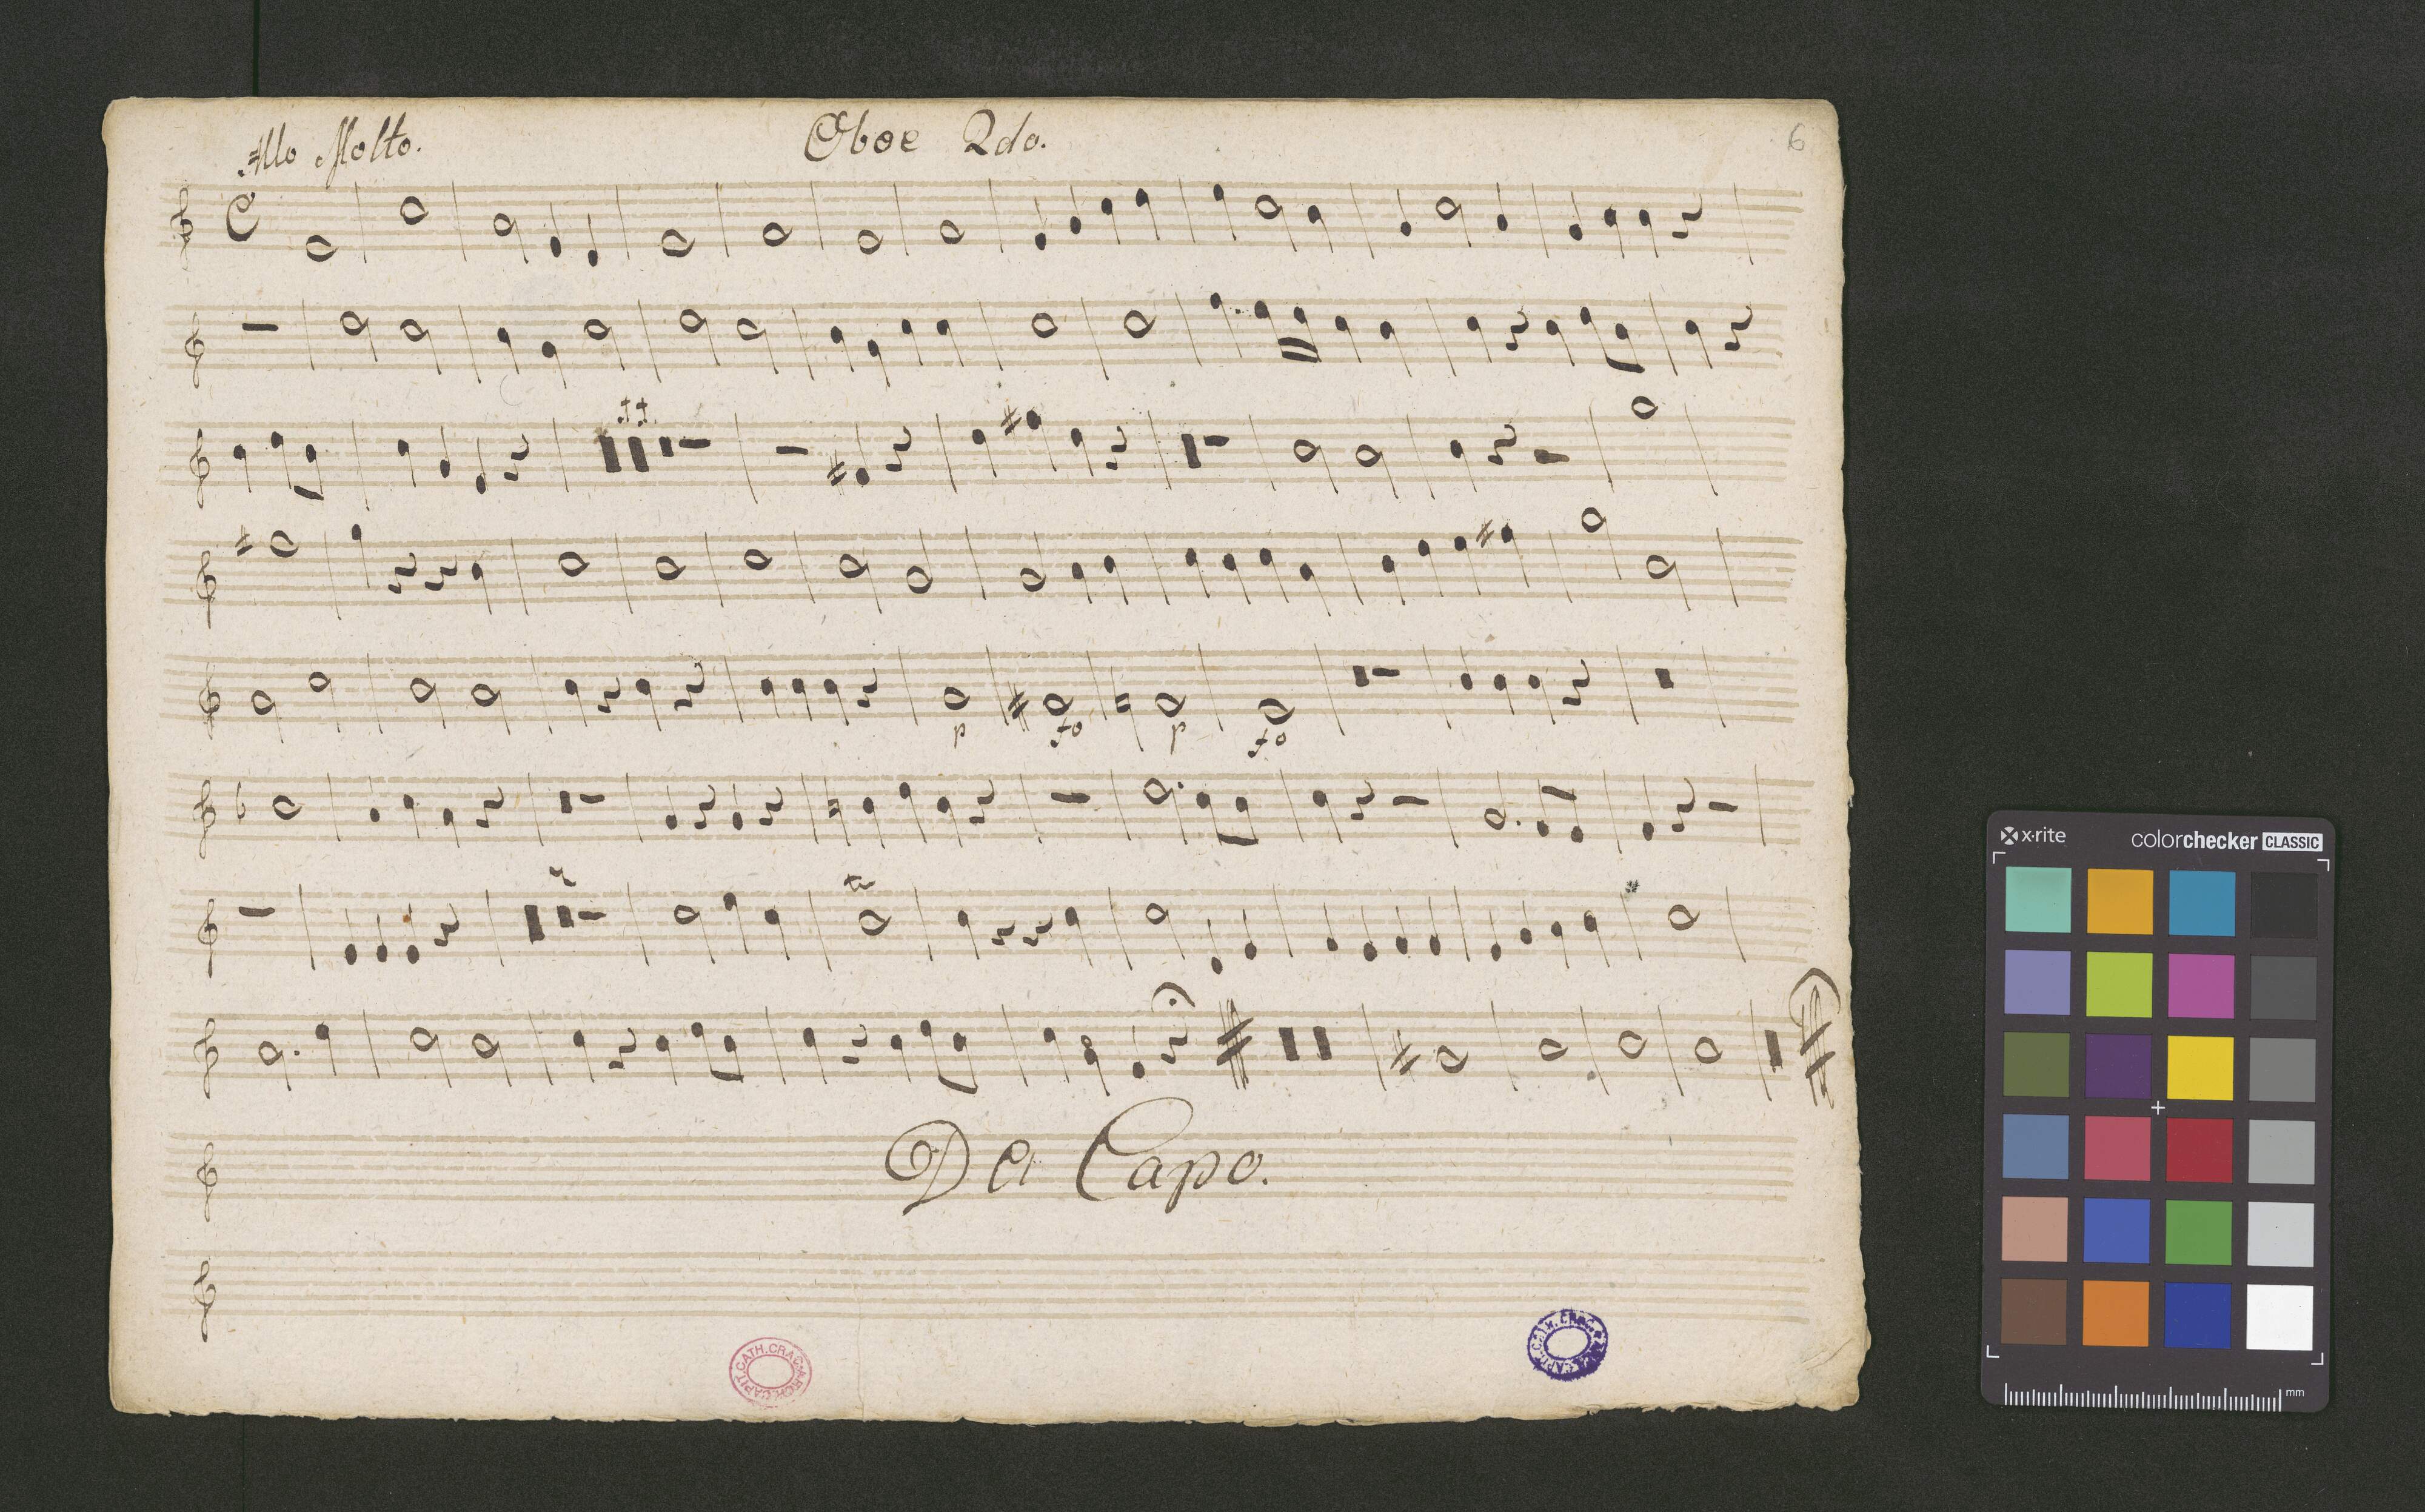 Allo Molto. Oboe 2do. 6
p fo p fo
Da Capo.
ARCH. CAPIT. CATH. CRAC.
x-rite colorchecker CLASSIC
mm